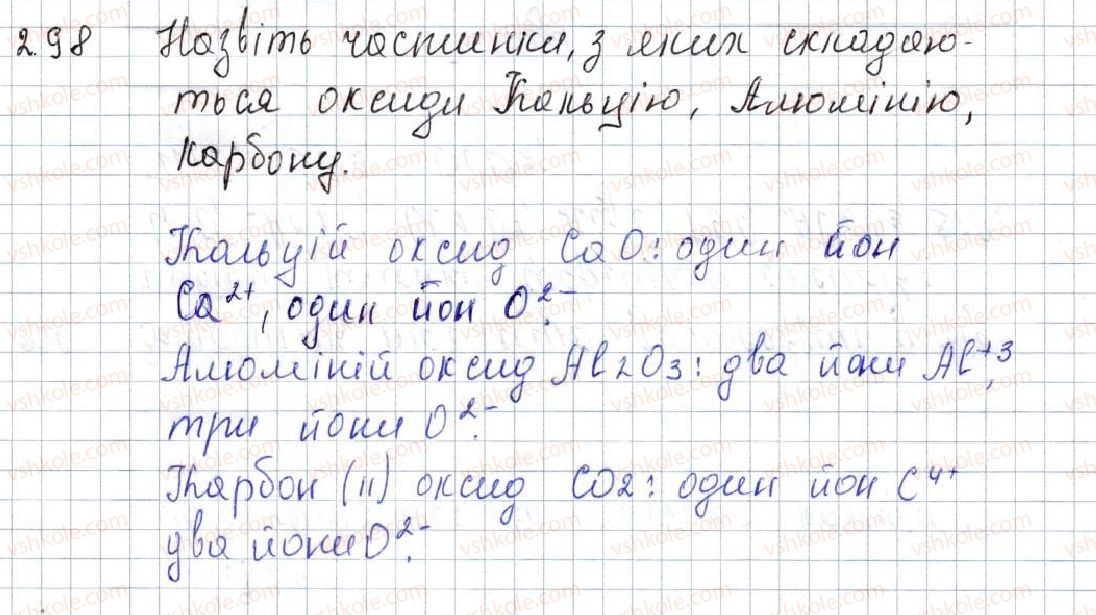 2.98 Назвіть частинки, з яких складаю-
ться оксиди Кальцію, Алюмінію,
Карбону.
Кальцій оксид CaO: один йон
Ca²⁺, один йон O²⁻.
Алюміній оксид Al₂O₃: два йони Al⁺³,
три йони O²⁻.
Карбон (II) оксид CO2: один йон C⁴⁺
два йони O²⁻.